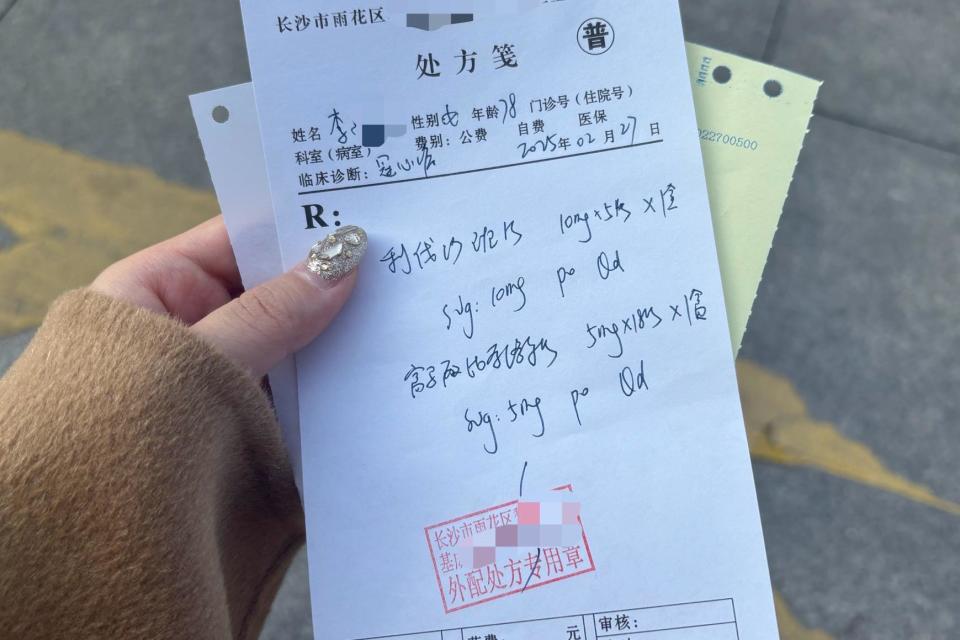 长沙市雨花区
普
处方笺
姓名 李 性别 女 年龄 78 门诊号(住院号)
科室(病室) 费别:公费 自费 医保
临床诊断:冠心病 2025年02月27日
R:
利伐沙班片 10mg×5片×1盒
Sig: 10mg po Qd
富马酸比索洛尔片 5mg×18片×1盒
Sig: 5mg po Qd
长沙市雨花区
基层
外配处方专用章
药费 元
审核:
022700500